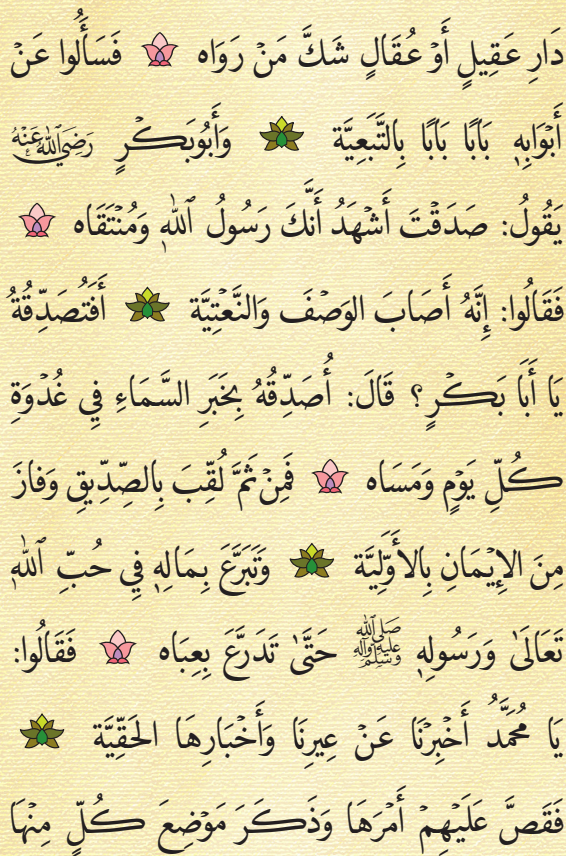 دَارِ عَقِيلٍ أَوْ عُقَالٍ شَكَّ مَنْ رَوَاه فَسَأَلُوا عَنْ
أَبْوَابِهِ بَابًا بَابًا بِالتَّبَعِيَّة وَأَبُوبَكْرٍ رَضِيَ اللهُ عَنْهُ
يَقُولُ: صَدَقْتَ أَشْهَدُ أَنَّكَ رَسُولُ ٱللهِ وَمُنْتَقَاه
فَقَالُوا: إِنَّهُ أَصَابَ الوَصْفَ وَالنَّعْتِيَّة أَفَتُصَدِّقُهُ
يَا أَبَا بَكْرٍ؟ قَالَ: أُصَدِّقُهُ بِخَبَرِ السَّمَاءِ فِي غُدْوَةِ
كُلِّ يَوْمٍ وَمَسَاه فَمِنْ ثَمَّ لُقِّبَ بِالصِّدِّيقِ وَفَازَ
مِنَ الإِيْمَانِ بِالأَوَّلِيَّة وَتَبَرَّعَ بِمَالِهِ فِي حُبِّ ٱللهِ
تَعَالَىٰ وَرَسُولِهِ صَلَّى ٱللهُ عَلَيْهِ وَآلِهِ وَسَلَّمَ حَتَّىٰ تَدَرَّعَ بِعِبَاه فَقَالُوا:
يَا مُحَمَّدُ أَخْبِرْنَا عَنْ عِيرِنَا وَأَخْبَارِهَا الحَقِّيَّة
فَقَصَّ عَلَيْهِمْ أَمْرَهَا وَذَكَرَ مَوْضِعَ كُلٍّ مِنْهَا